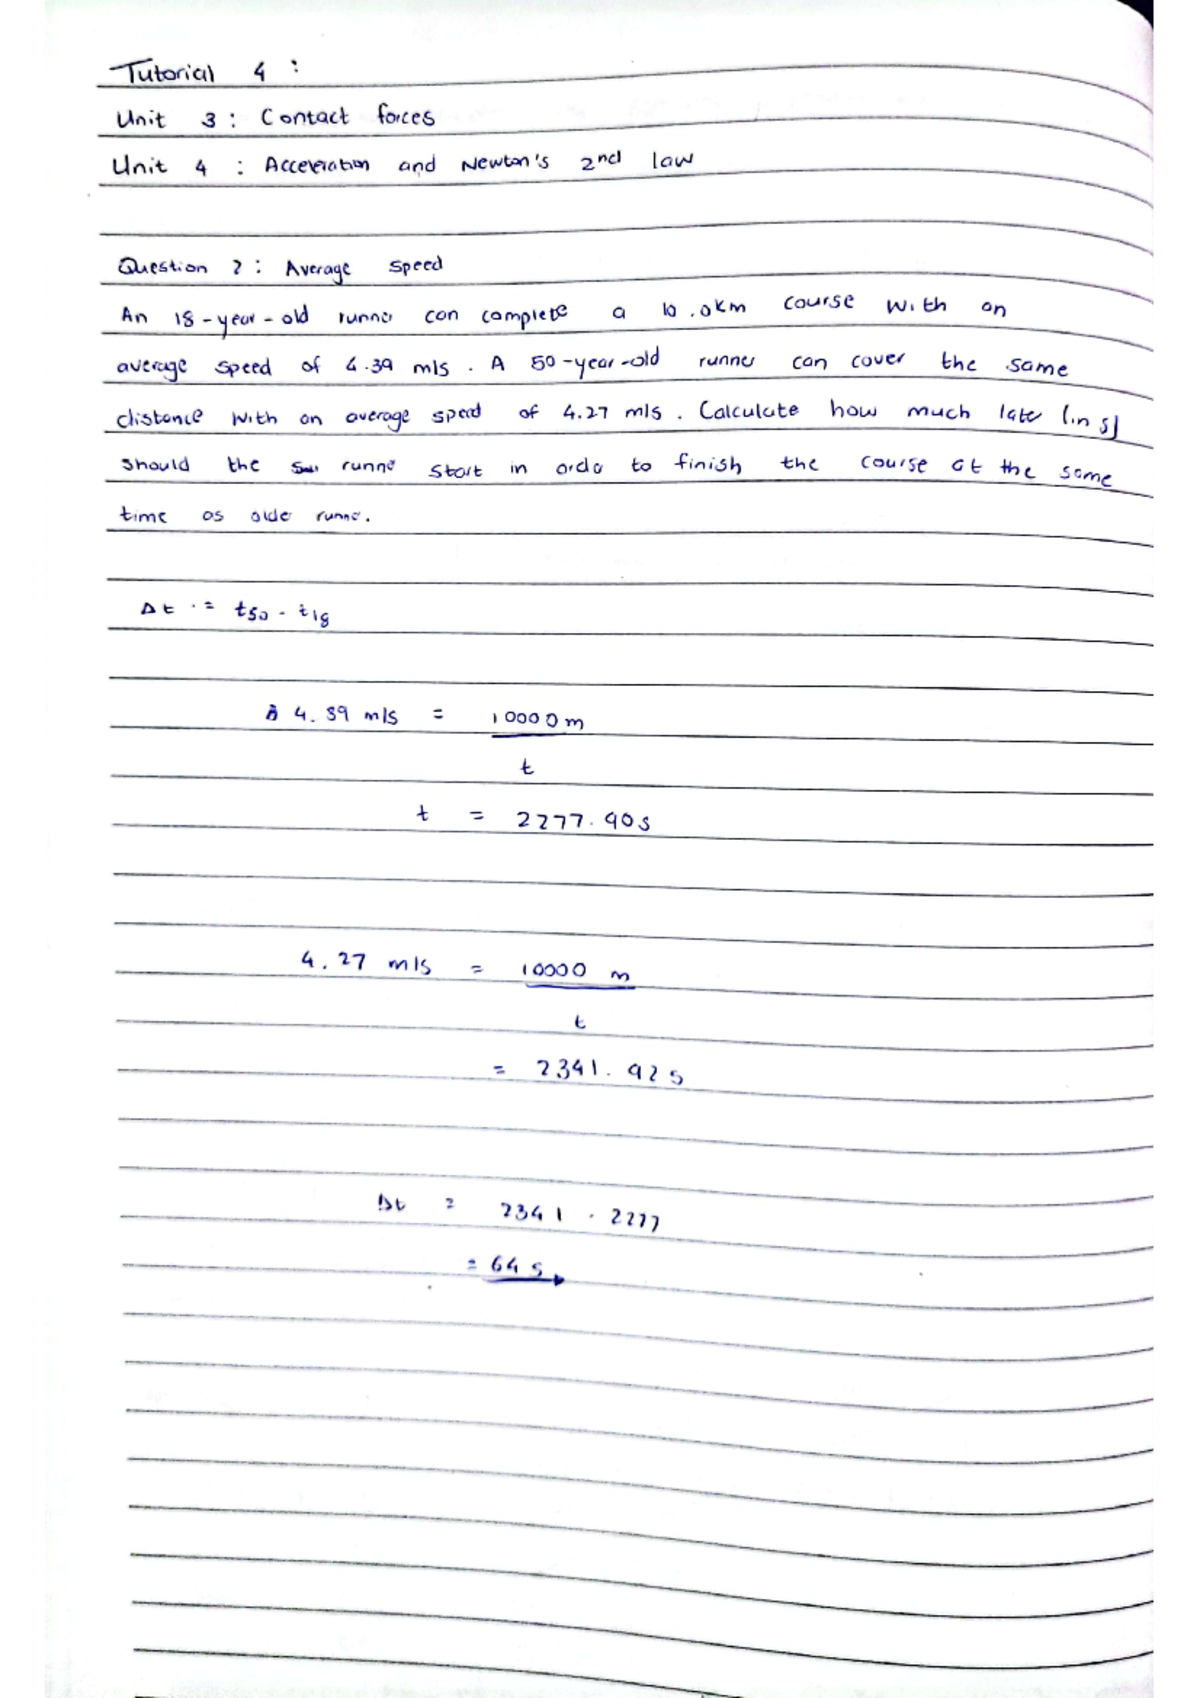 Tutorial 4 :
Unit 3 : Contact forces
Unit 4 : Acceleration and Newton's 2nd law
Question 2 : Average speed
An 18-year-old runner can complete a 10.0km course with an
average speed of 4.39 m/s . A 50-year-old runner can cover the same
distance with an average speed of 4.27 m/s . Calculate how much later (in s)
should the runner start in order to finish the course at the same
time as older runner.
Δt = t50 - t18
4.39 m/s = 10000 m
t
t = 2277.90s
4.27 m/s = 10000 m
t
= 2341.92 s
Δt = 2341 - 2277
= 64 s